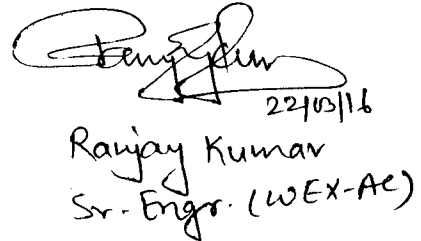 22/03/16
Ranjay Kumar
Sr. Engr. (WEX-AE)